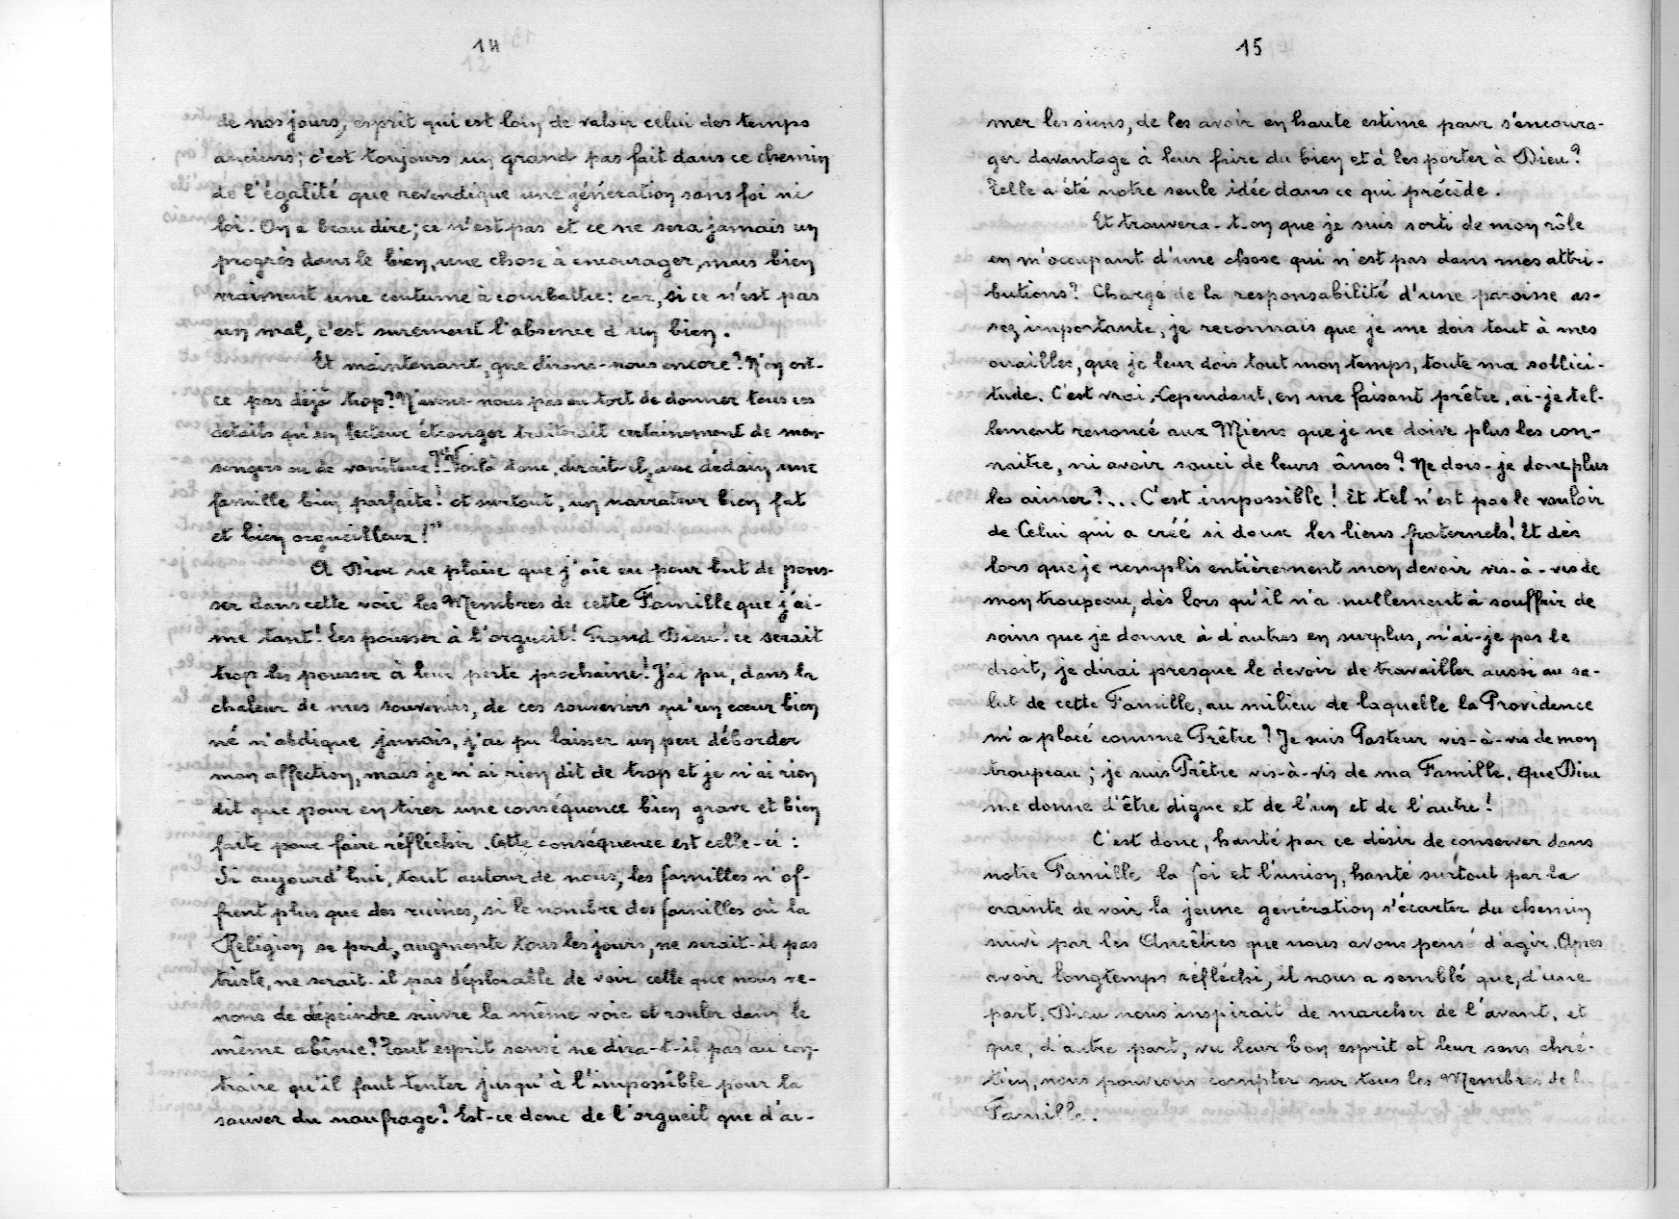 14
de nos jours, esprit qui est loin de valoir celui des temps
anciens; c'est toujours un grand pas fait dans ce chemin
de l'égalité que revendique une génération sans foi ni
loi. On a beau dire; ce n'est pas et ce ne sera jamais un
progrès dans le bien, une chose à encourager, mais bien
vraiment une coutume à combattre: car, si ce n'est pas
un mal, c'est surement l'absence d'un bien.
Et maintenant, que dirons-nous encore? N'en est-
ce pas déjà trop? N'avons-nous pas eu tort de donner tous ces
détails qu'un lecteur étranger traiterait certainement de men-
songers ou de vaniteux? "Voilà donc, dirait-il, avec dédain, une
famille bien parfaite! et surtout, un narrateur bien fat
et bien orgueilleux!"
A Dieu ne plaise que j'aie eu pour but de pous-
ser dans cette voie les Membres de cette Famille que j'ai-
me tant! Les pousser à l'orgueil! Grand Dieu! ce serait
trop les pousser à leur perte prochaine! J'ai pu, dans la
chaleur de mes souvenirs, de ces souvenirs qu'un cœur bien
né n'abdique jamais, j'ai pu laisser un peu déborder
mon affection, mais je n'ai rien dit de trop et je n'ai rien
dit que pour en tirer une conséquence bien grave et bien
faite pour faire réfléchir. Cette conséquence est celle-ci:
Si aujourd'hui, tout autour de nous, les familles n'of-
frent plus que des ruines, si le nombre des familles où la
Religion se perd, augmente tous les jours, ne serait-il pas
triste, ne serait-il pas déplorable de voir celle que nous ve-
nons de dépeindre suivre la même voie et rouler dans le
même abîme? Tout esprit sensé ne dira-t-il pas au con-
traire qu'il faut tenter jusqu'à l'impossible pour la
sauver du naufrage? Est-ce donc de l'orgueil que d'ai-
15
mer les siens, de les avoir en haute estime pour s'encoura-
ger davantage à leur faire du bien et à les porter à Dieu?
Telle a été notre seule idée dans ce qui précède.
Et trouvera-t-on que je suis sorti de mon rôle
en m'occupant d'une chose qui n'est pas dans mes attri-
butions? Chargé de la responsabilité d'une paroisse as-
sez importante, je reconnais que je me dois tout à mes
ouailles, que je leur dois tout mon temps, toute ma sollici-
tude. C'est vrai. Cependant, en me faisant prêtre, ai-je tel-
lement renoncé aux Miens que je ne doive plus les con-
naitre, ni avoir souci de leurs âmes? Ne dois-je donc plus
les aimer?... C'est impossible! Et tel n'est pas le vouloir
de Celui qui a créé si doux les liens fraternels! Et dès
lors que je remplis entièrement mon devoir vis-à-vis de
mon troupeau, dès lors qu'il n'a nullement à souffrir de
soins que je donne à d'autres en surplus, n'ai-je pas le
droit, je dirai presque le devoir de travailler aussi au sa-
lut de cette Famille, au milieu de laquelle la Providence
m'a placé comme Prêtre? Je suis Pasteur vis-à-vis de mon
troupeau; je suis Prêtre vis-à-vis de ma Famille. Que Dieu
me donne d'être digne et de l'un et de l'autre!
C'est donc, hanté par ce désir de conserver dans
notre Famille la foi et l'union, hanté surtout par la
crainte de voir la jeune génération s'écarter du chemin
suivi par les Ancêtres que nous avons pensé d'agir. Apres
avoir longtemps réfléchi, il nous a semblé que, d'une
part, Dieu nous inspirait de marcher de l'avant, et
que, d'autre part, vu leur bon esprit et leur sens chré-
tien, nous pouvions compter sur tous les Membres de la
Famille.